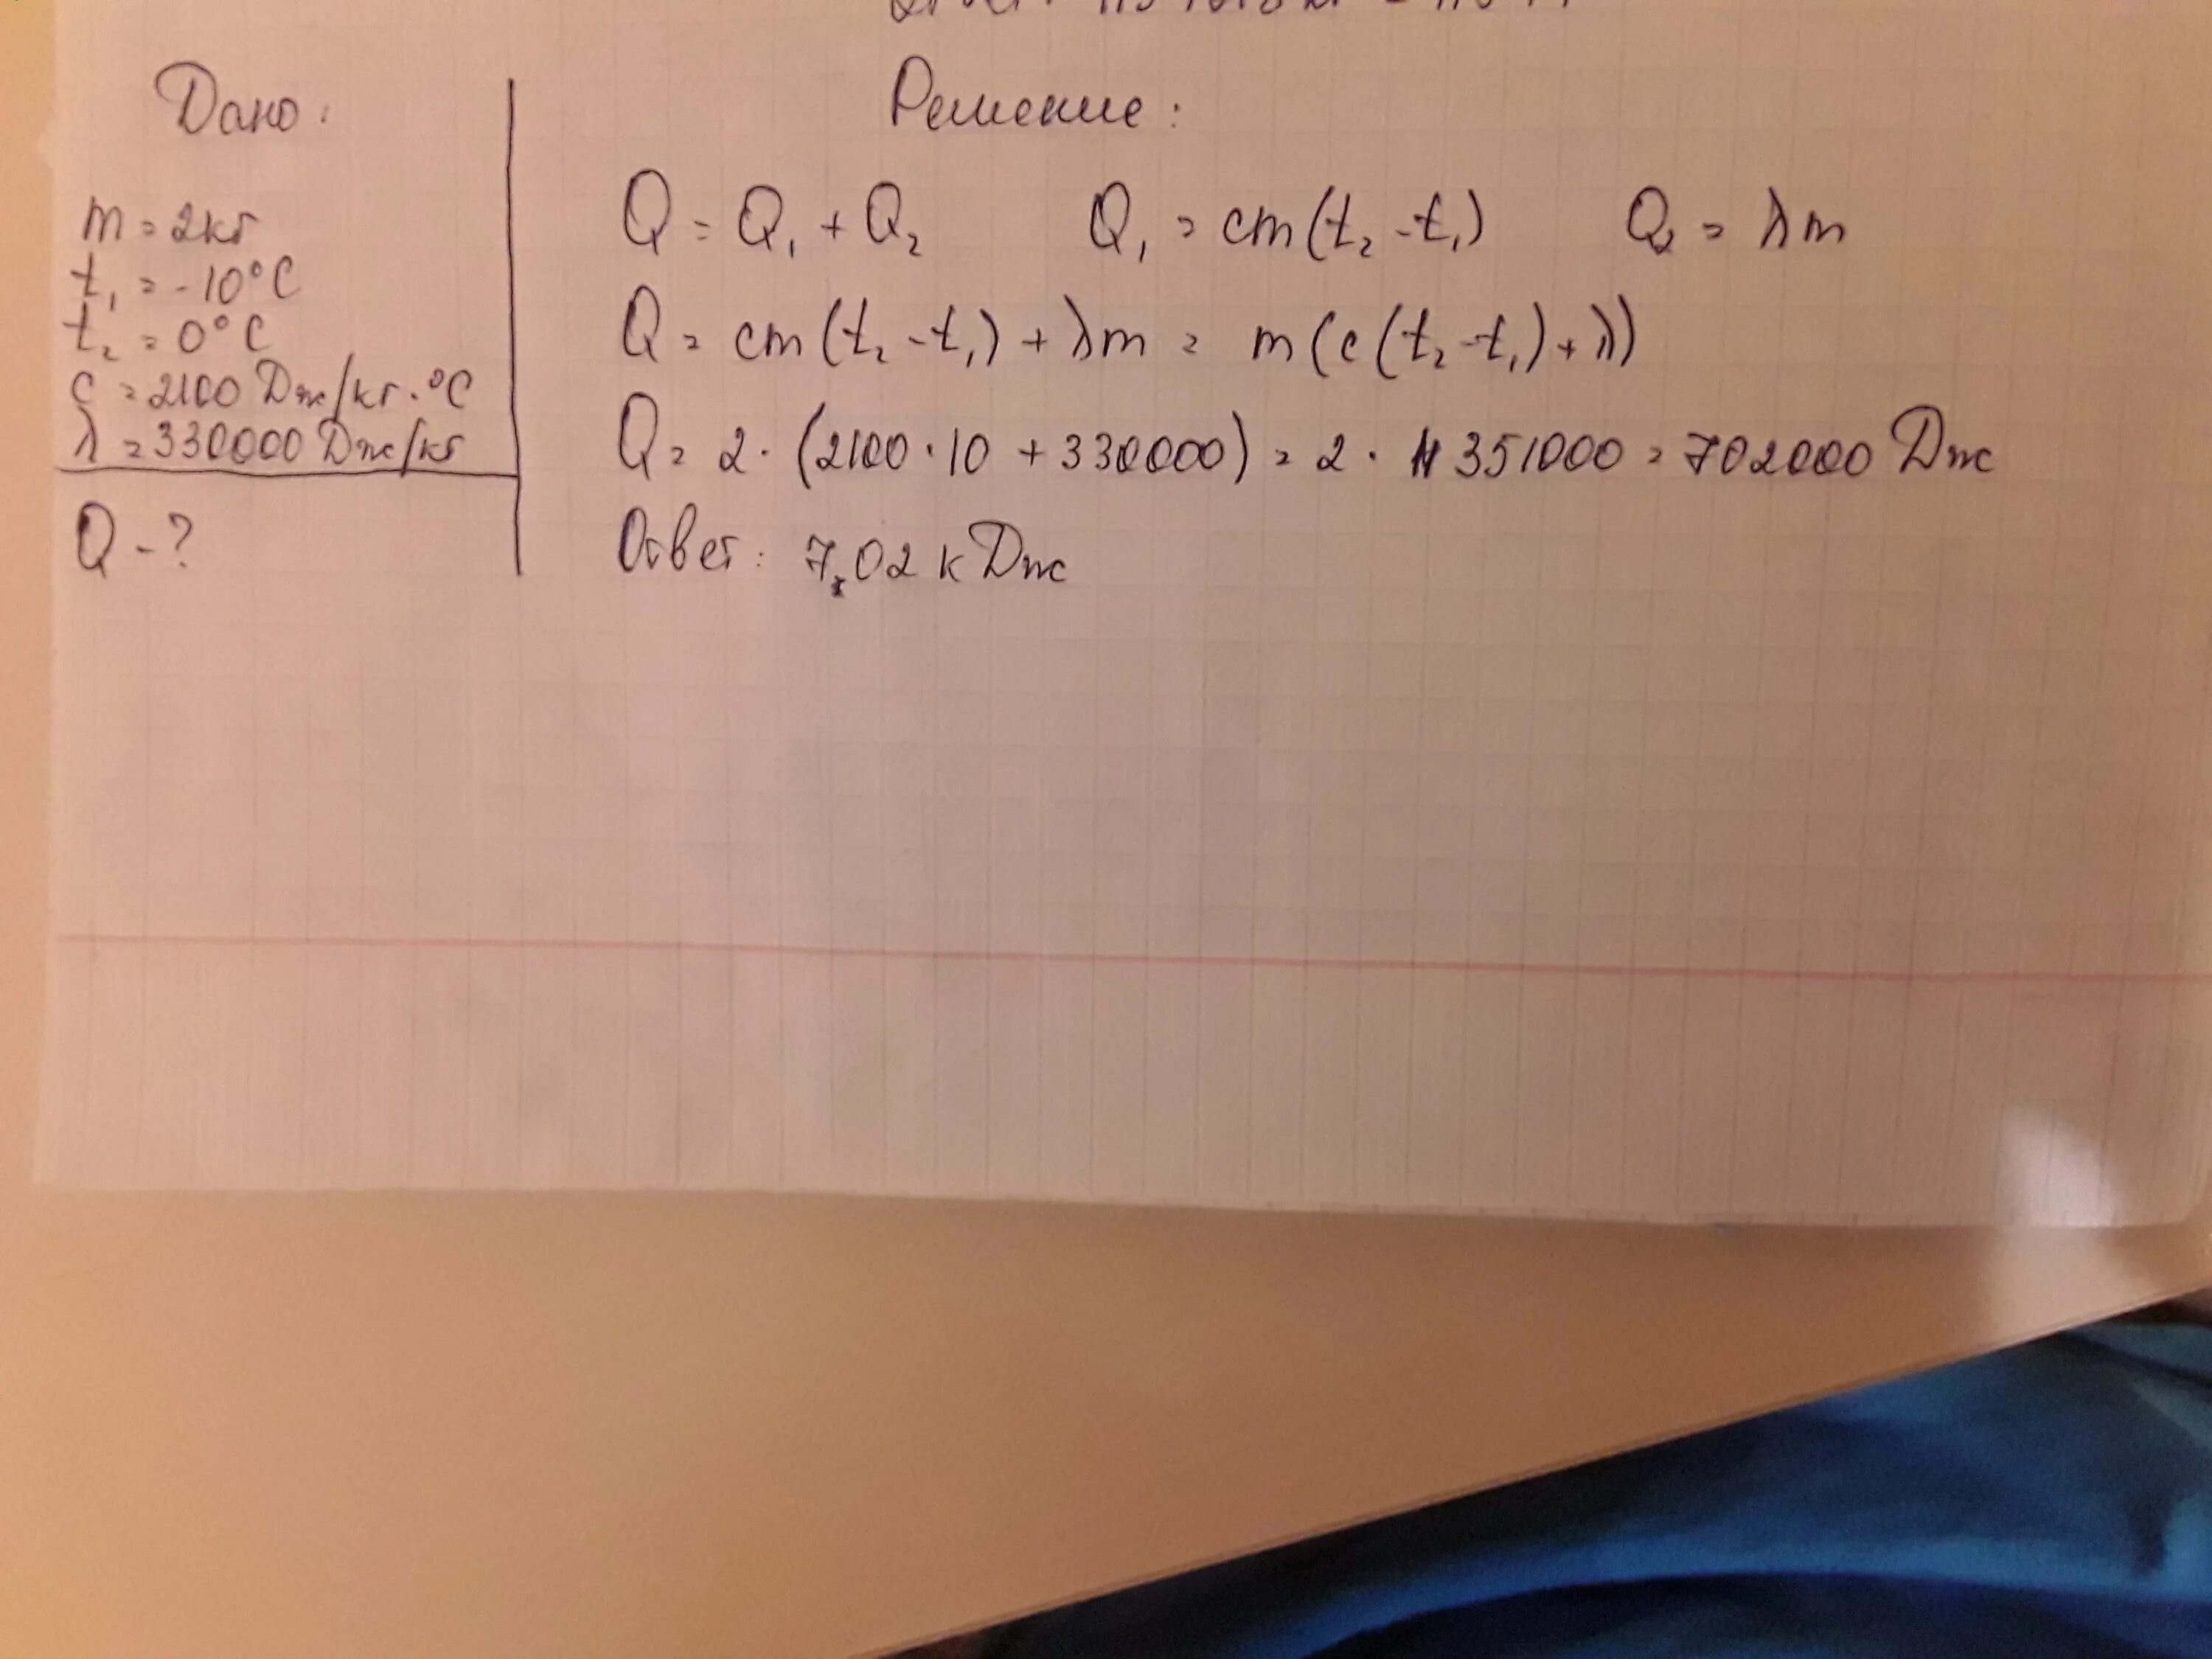 Дано:
m = 2кг
t₁ = -10°C
t₂ = 0°C
c = 2100 Дж/кг·°C
λ = 330000 Дж/кг
Q - ?
Решение:
Q = Q₁ + Q₂ Q₁ = cm(t₂ - t₁) Q₂ = λm
Q = cm(t₂ - t₁) + λm = m(c(t₂ - t₁) + λ)
Q = 2·(2100·10 + 330000) = 2 · 351000 = 702000 Дж
Ответ: 7,02 кДж